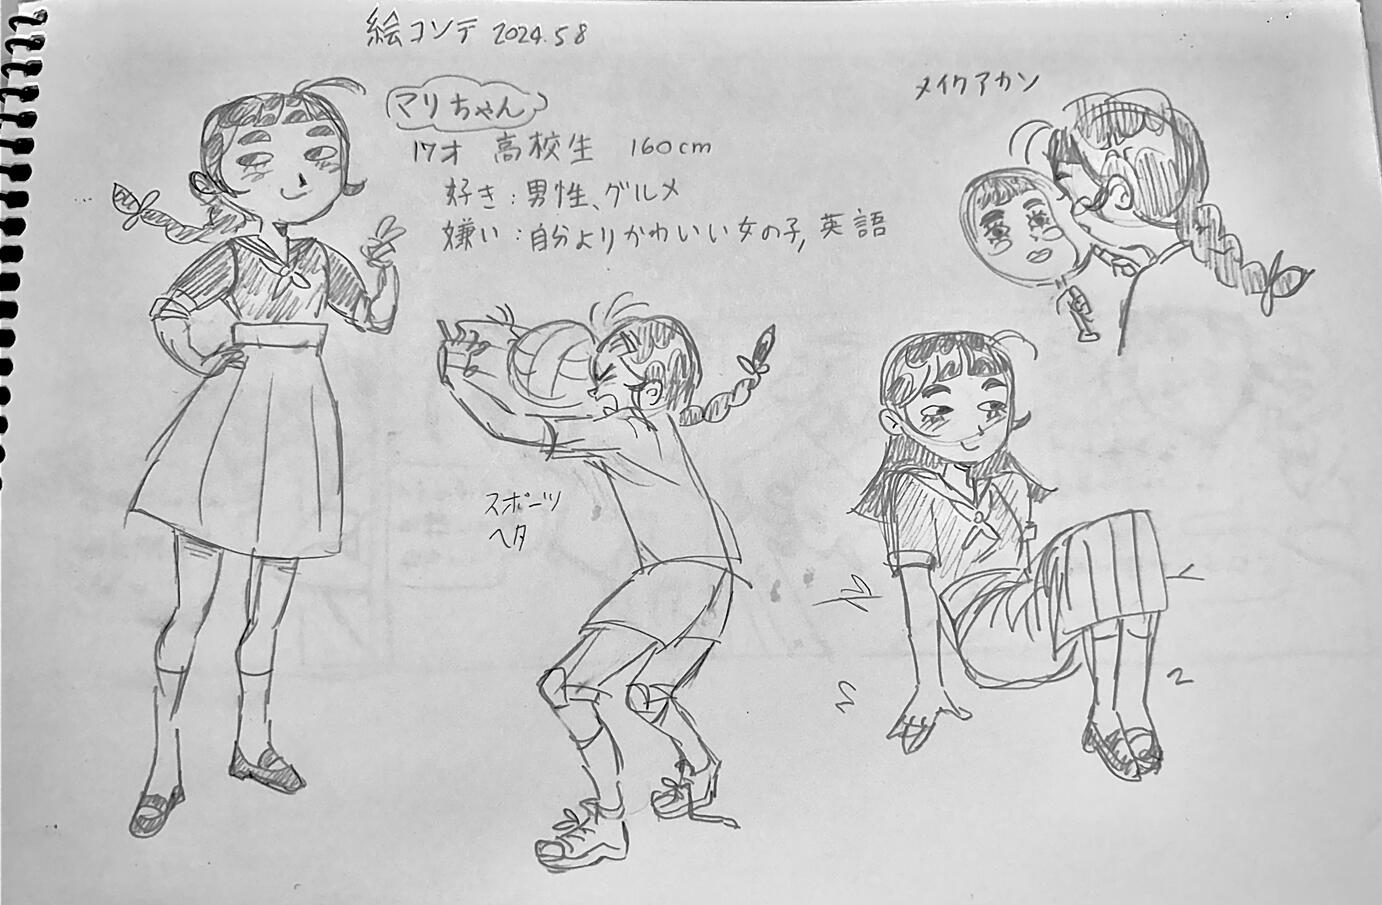 絵コンテ 2024.5 8
マリちゃん
17才 高校生 160cm
好き:男性、グルメ
嫌い:自分よりかわいい女の子, 英語
メイクアカン
スポーツ
ヘタ